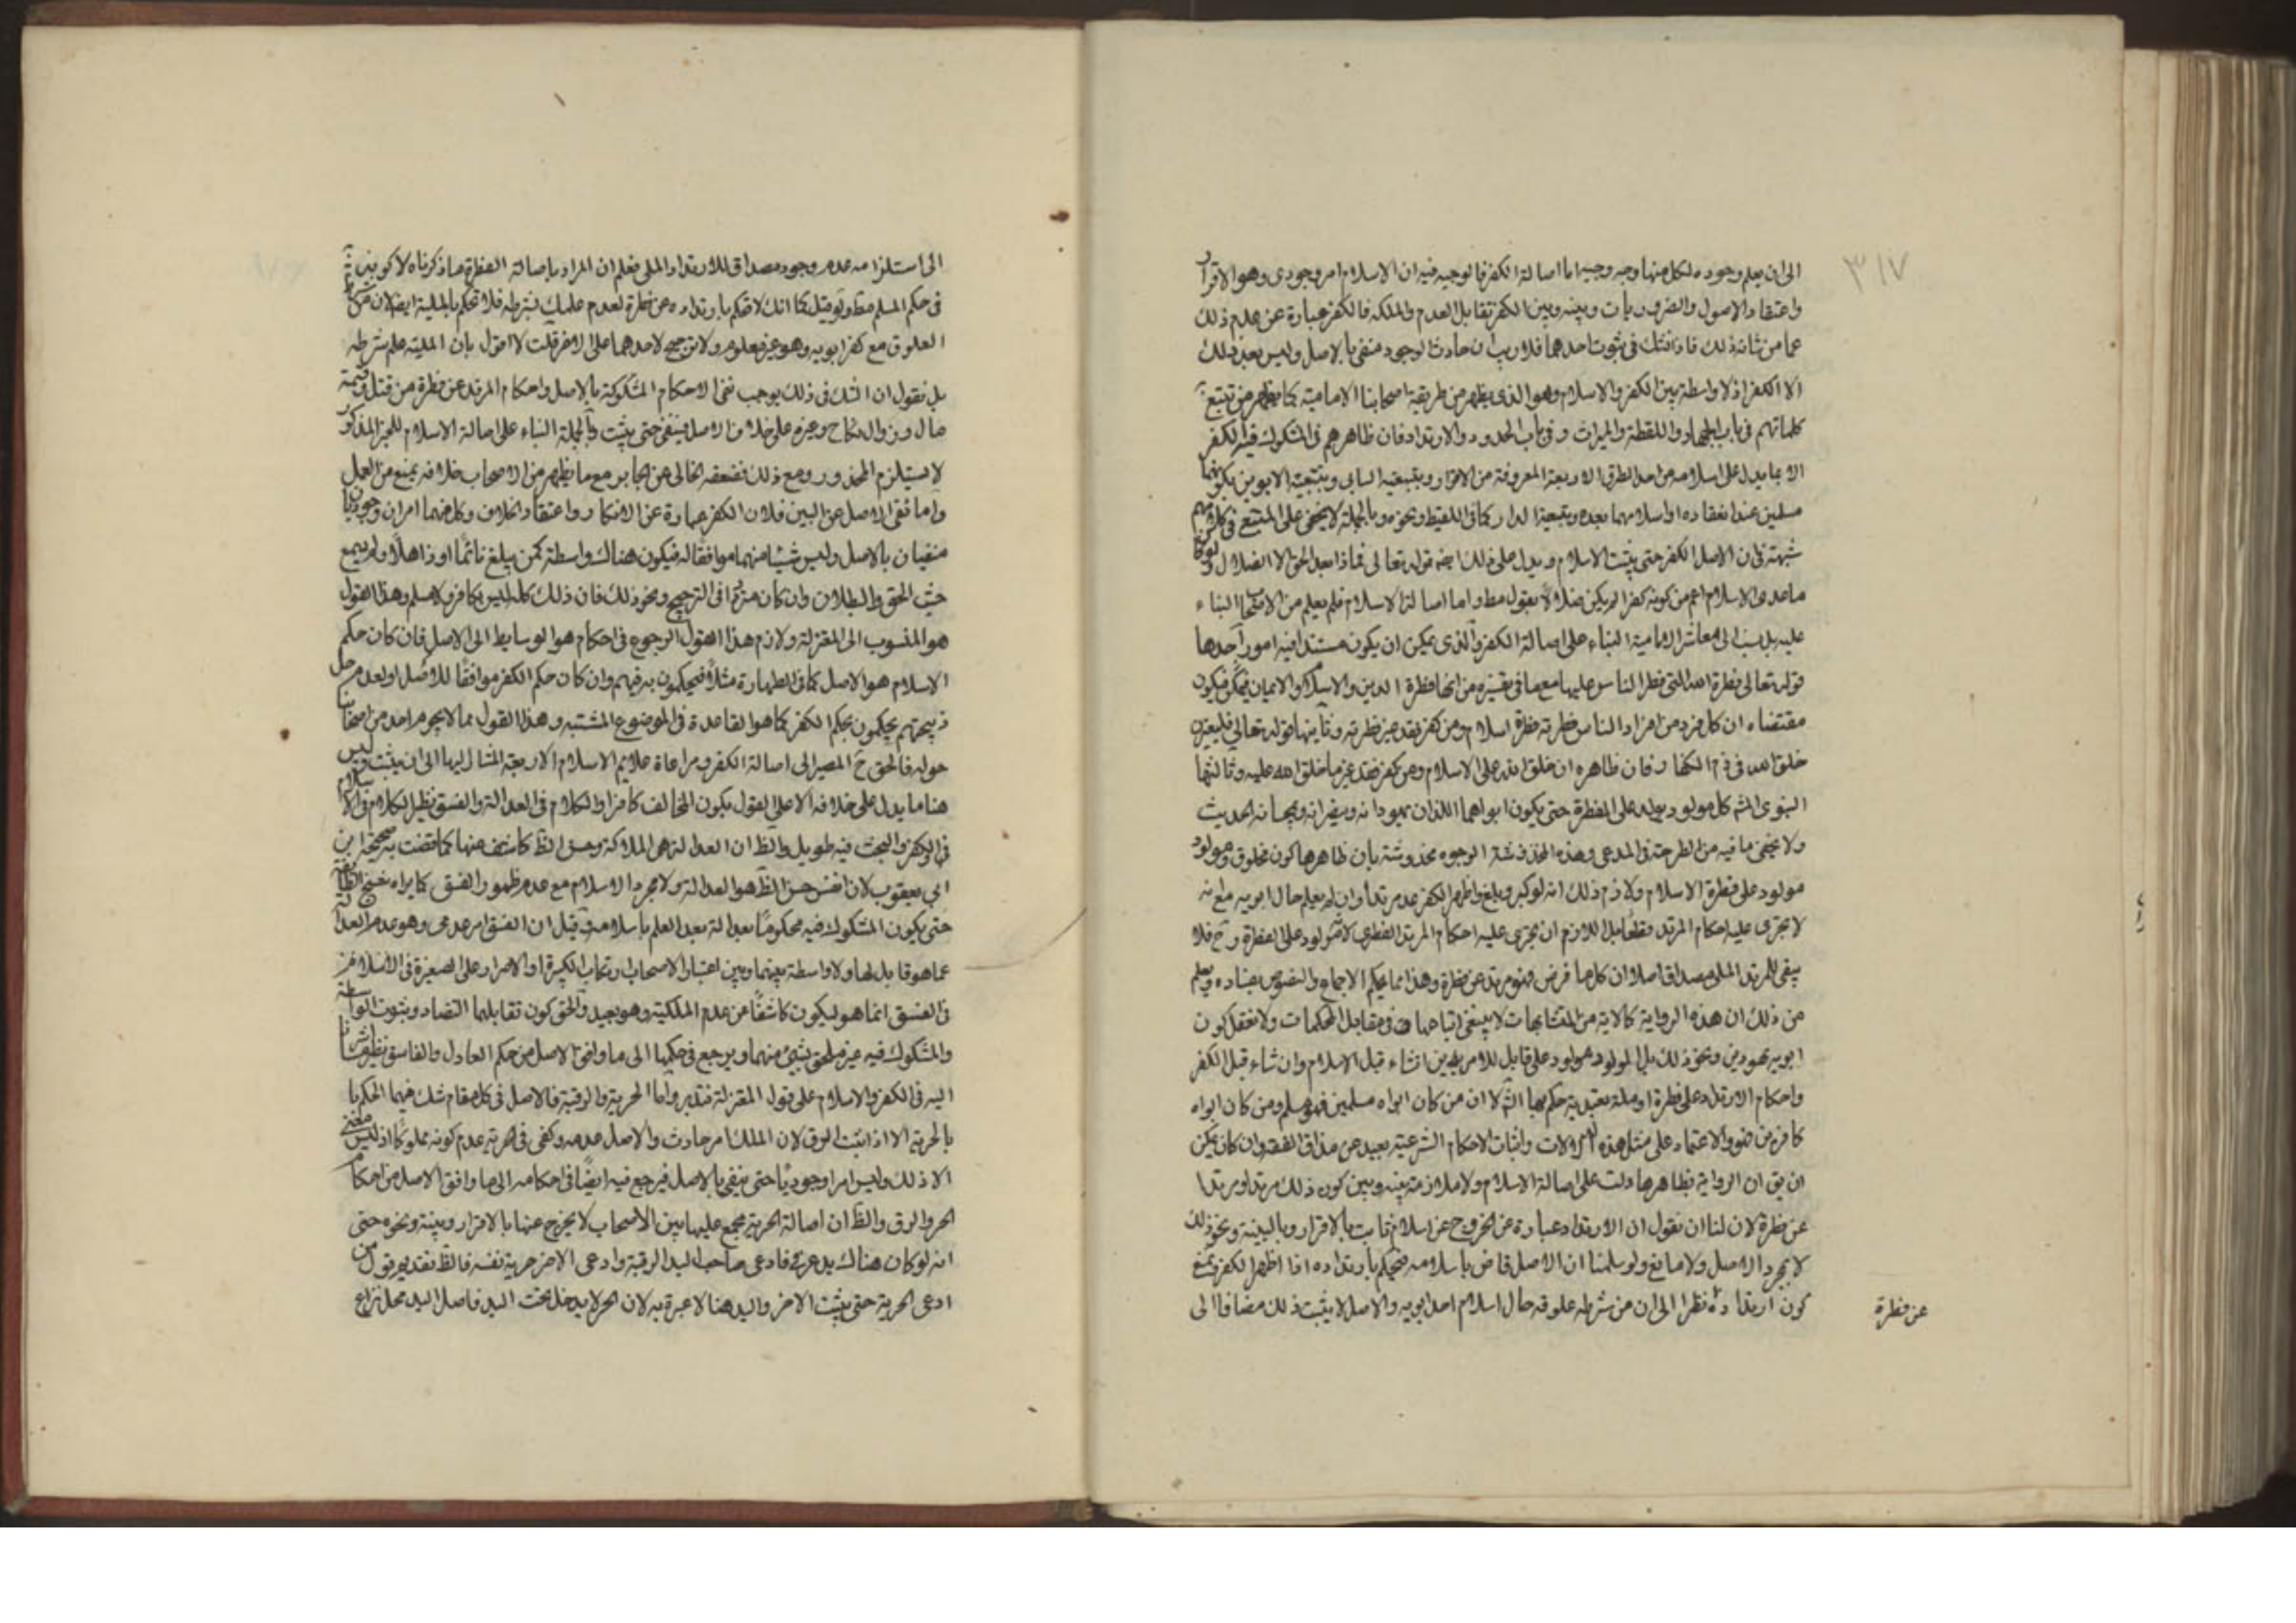 ٣١٧
الى ان يعلم وجوده لكل منها وجه وجيه اما اصالة الكفر فالوجه فيه ان الاسلام امر وجودى وهو الاقرار
واعتقاد الاصول والضروريات وبينه وبين الكفر تقابل العدم والملكه فالكفر عبارة عن عدم ذلك
عما من شانه ذلك فاذا شك فى ثبوت احدهما فلا ريب ان حادث الوجود منفى بالاصل وليس بعد ذلك
الا الكفر اذ لا واسطة بين الكفر والاسلام وهو الذى يظهر من طريقة اصحابنا الامامية كما يظهر من تتبع
كلماتهم فى باب الجهاد واللقطة والميراث وفى باب الحدود والارتداد فان ظاهرهم فى المشكوك فيه الكفر
الا بما يدل على اسلامه من احد الطرق الاربعة المعروفة من الاقرار وتبعية السابى وتبعية الابوين بكونهما
مسلمين عند انعقاده او اسلامهما بعده وتبعية الدار كما فى اللقيط ونحوه وبالجملة لا يخفى على المتتبع فى كلامهم
شبهة فى ان الاصل الكفر حتى يثبت الاسلام ويدل على ذلك ايضا قوله تعالى فماذا بعد الحق الا الضلال ولو كان
ماعدى الاسلام اعم من كونه كفرا لم يكن ضلالا بقول مط واما اصالة الاسلام فلم يعلم من الاصحاب البناء
عليه بل نسب الى معاشر الامامية البناء على اصالة الكفر والذى يمكن ان يكون مستندا فيه امور احدها
قوله تعالى فطرة الله التى فطر الناس عليها مع ما فى تفسيره من انها فطرة الدين والاسلام والايمان فيكون
مقتضاه ان كل فرد من افراد الناس فطرته فطرة اسلام ومن كفر فقد غير فطرته وثانيها قوله تعالى فليغيرن
خلق الله فى ذم الكفار فان ظاهره ان خلق الله على الاسلام ومن كفر فقد غير ما خلق الله عليه وثالثها
النبوى المش كل مولود يولد على الفطرة حتى يكون ابواهما اللذان يهودانه وينصرانه ويمجسانه الحديث
ولا يخفى ما فيه من الصراحة فى المدعى وهذه الوجوه مخدوشة بان ظاهرها كون مخلوق ومولود
مولود على فطرة الاسلام ولازم ذلك انه لو كبر وبلغ واظهر الكفر عد مرتدا وان لم يعلم حال ابويه مع انه
لا يجرى عليه احكام المرتد قطعا بل اللازم ان يجرى عليه احكام المرتد الفطرى لانه مولود على الفطرة وح فلا
يبقى للمرتد الملى مصداق اصلا ان كل ما فرض فهو مرتد عن فطرة وهذا مما يحكم الاجماع والنصوص بفساده ويعلم
من ذلك ان هذه الرواية كالاية من المتشابهات لا ينبغى اتباعها فى مقابل المحكمات ولا نعقل كون
ابويه يهودين ونحو ذلك بل المولود مولود على قابل للامرين ان شاء قبل الاسلام وان شاء قبل الكفر
واحكام الارتداد على فطرة او ملة تعبدية حكم بها الش لا ان من كان ابواه مسلمين فهو مسلم ومن كان ابواه
كافرين فهو والاعتماد على مثل هذه الدلالات واثبات الاحكام الشرعية بعيد عن مذاق الفقه وان كان يمكن
ان يق ان الرواية بظاهرها دلت على اصالة الاسلام ولا ملازمة بينه وبين كون ذلك مرتدا ومرتدا
عن فطرة لان لنا ان نقول ان الارتداد عبارة عن الخروج عن اسلام ثابت بالاقرار وبالبينة ونحو ذلك
لا بمجرد الاصل ولا مانع ولو سلمنا ان الاصل قاض باسلامه فنحكم بارتداده اذا اظهر الكفر ونمنع
كون ارتداده نظرا الى ان من شرطه علوقه حال اسلام احد ابويه والاصل لا يثبت ذلك مضافا الى
عن فطرة
الى استلزامه عدم وجود مصداق للارتداد الملى فعلم ان المراد باصالة الفطرة ما ذكرناه لا كونه
فى حكم المسلم مط ولو قيل كما انك لا تحكم بارتداده عن فطرة لعدم علمك بشرطه فلا تحكم بالملية ايضا لان شرطها
العلوق مع كفر ابويه وهو غير معلوم ولا ترجيح لاحدهما على الاخر قلت لا اقول بان الملية علم شرطه
بل نقول ان الشك فى ذلك يوجب نفى الاحكام المشكوكة بالاصل واحكام المرتد عن فطرة من قتل وقسمة
مال وزوال نكاح وغيره على خلاف الاصل فينفى حتى يثبت وبالجملة البناء على اصالة الاسلام للخبر المذكور
لا يستلزم المحذور ومع ذلك فضعفه الخالى عن الجابر مع ما يظهر من الاصحاب خلافه يمنع من العمل
واما نفى الاصل عن البين فلان الكفر عبارة عن الانكار واعتقاد الخلاف وكل منهما امران وجوديان
منفيان بالاصل وليس شيئا منهما موافقا له فيكون هناك واسطة كمن يبلغ نائما او ذاهلا ولم يسمع
حيث الحق والبطلان وان كان مترددا فى الترجيح ونحو ذلك فان ذلك كله ليس بكافر ولا مسلم وهذا القول
هو المنسوب الى المعتزلة ولازم هذا القول الرجوع فى احكام هو الوسايط الى الاصل فان كان حكم
الاسلام هو الاصل كما فى الطهارة مثلا فيحكمون به فيهم وان كان حكم الكفر موافقا للاصل كعدم حل
ذبيحتهم يحكمون بحكم الكفر كما هو القاعدة فى الموضوع المشتبه وهذا القول مما لا يحوم احد من اصحابنا
حوله فالحق ح المصير الى اصالة الكفر ومراعاة علايم الاسلام الاربعة المشار اليها الى ان يثبت وليس
هنا ما يدل على خلافه الا على القول بكون المخالف كافرا والكلام فى العدالة والفسق نظير الكلام فى الاسلام
والكفر والبحث فيه طويل والظ ان العدالة هى الملكة وحسن الظ كاشف عنها كما قضت به صحيحة ابن
ابي يعقوب لان نفس حسن الظ هو العدالة ولا مجرد الاسلام مع عدم ظهور الفسق كما يراه شيخ الطائفة
حتى يكون المشكوك فيه محكوما بعدالة بعد العلم باسلامه وقيل ان الفسق امر عدمى وهو عدم العدالة
عما هو قابل لها ولا واسطة بينهما وبين اعتبار الاصحاب ارتكاب الكبيرة او الاصرار على الصغيرة
فى الفسق انما هو ليكون كاشفا عن عدم الملكية وهو بعيد والحق كون تقابلهما التضاد وبثبوت الواسطة
والمشكوك فيه غير ملحق بشئ منهما ويرجع فى حكمها الى ما وافق الاصل من حكم العادل والفاسق نظير ما اشرنا
اليه فى الكفر والاسلام على قول المعتزلة فتدبر واما الحرية والرقية فالاصل فى كل مقام شك فيهما الحكم
بالحرية الا اذا ثبت الرق لان الملك امر حادث والاصل عدمه وكفى فى الحرية عدم كونه مملوكا اذ ليس معنى
الا ذلك وليس امرا وجوديا حتى ينفى بالاصل فيرجع فيه ايضا فى احكامه الى ما وافق الاصل من احكام
الحر والرق والظ ان اصالة الحرية مجمع عليها بين الاصحاب لا يخرج عنها بالاقرار وبينة ونحوه حتى
انه لو كان هناك يد عرفى فادعى صاحب اليد الرقية وادعى الاخر حرية نفسه فالظ تقديم قول من
ادعى الحرية حتى يثبت الاخر واليد هنا لا عبرة به لان الحر لا يدخل تحت اليد فاصل اليد محل نزاع